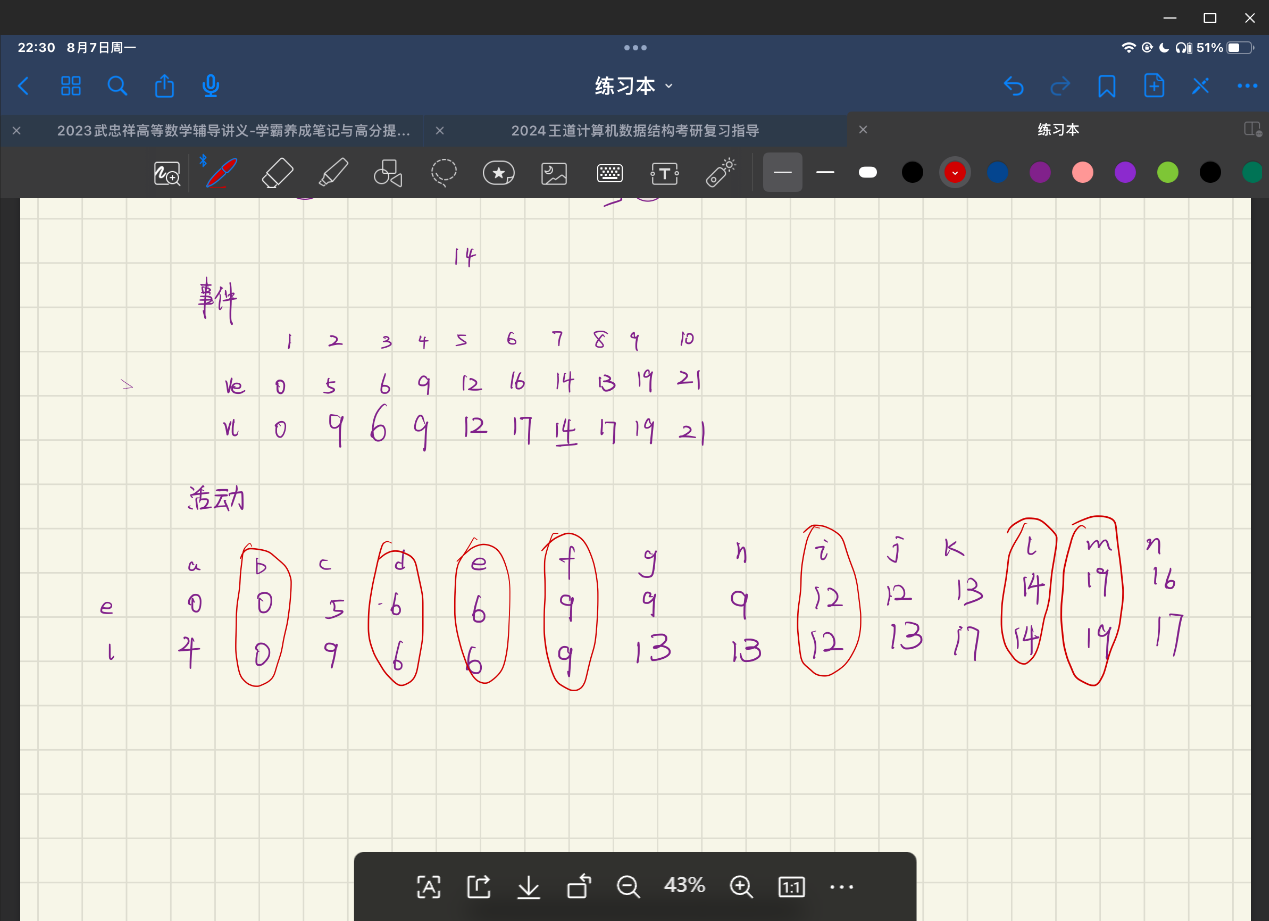 22:30 8月7日周一
51%
练习本
2023武忠祥高等数学辅导讲义-学霸养成笔记与高分提...
2024王道计算机数据结构考研复习指导
练习本
14
事件
1 2 3 4 5 6 7 8 9 10
ve 0 5 6 9 12 16 14 13 19 21
vl 0 9 6 9 12 17 14 17 19 21
活动
a b c d e f g h i j k l m n
e 0 0 5 6 6 9 9 9 12 12 13 14 19 16
l 4 0 9 6 6 9 13 13 12 13 17 14 19 17
43%
1:1